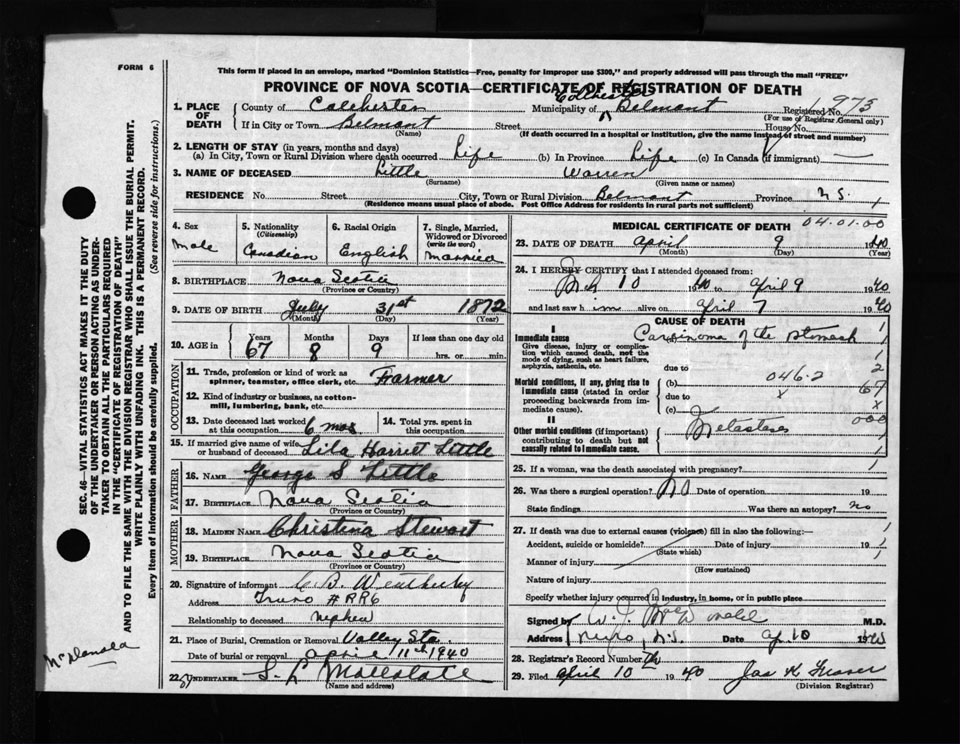 FORM 6
This form if placed in an envelope, marked "Dominion Statistics—Free, penalty for improper use $300," and properly addressed will pass through the mail "FREE"
PROVINCE OF NOVA SCOTIA—CERTIFICATE OF REGISTRATION OF DEATH
1. PLACE OF DEATH County of Colchester Municipality of Colchester Belmont Registered No. 973
(For use of Registrar General only)
If in City or Town Belmont Street House No.
(Name) (If death occurred in a hospital or institution, give the name instead of street and number)
2. LENGTH OF STAY (in years, months and days)
(a) In City, Town or Rural Division where death occurred Life (b) In Province Life (c) In Canada (if immigrant)
3. NAME OF DECEASED Little Warren
(Surname) (Given name or names)
RESIDENCE No. Street City, Town or Rural Division Belmont Province N S.
(Residence means usual place of abode. Post Office Address for residents in rural parts not sufficient)
4. Sex 5. Nationality 6. Racial Origin 7. Single, Married, Widowed or Divorced
(Citizenship) (write the word)
Male Canadian English Married
8. BIRTHPLACE Nova Scotia
(Province or Country)
9. DATE OF BIRTH July 31st 1872
(Month) (Day) (Year)
10. AGE in Years Months Days If less than one day old
67 8 9 hrs. or min.
OCCUPATION
11. Trade, profession or kind of work as spinner, teamster, office clerk, etc. Farmer
12. Kind of industry or business, as cotton-mill, lumbering, bank, etc.
13. Date deceased last worked at this occupation 6 mos 14. Total yrs. spent in this occupation
15. If married give name of wife or husband of deceased Lila Harriet Little
FATHER
16. NAME George S Little
17. BIRTHPLACE Nova Scotia
(Province or Country)
MOTHER
18. MAIDEN NAME Christina Stewart
19. BIRTHPLACE Nova Scotia
(Province or Country)
20. Signature of informant C B. Weatherby
Address Truro #RR6
Relationship to deceased nephew
21. Place of Burial, Cremation or Removal Valley Sta.
Date of burial or removal April 11th 1940
22. UNDERTAKER S. L
(Name and address)
MEDICAL CERTIFICATE OF DEATH
04.01.00
23. DATE OF DEATH April 9 1940
(Month) (Day) (Year)
24. I HEREBY CERTIFY that I attended deceased from:
10 1940 to April 9 1940
and last saw him alive on April 7 1940
CAUSE OF DEATH
I
Immediate cause Carcinoma of the stomach 1
Give disease, injury or complication which caused death, not the mode of dying, such as heart failure, asphyxia, asthenia, etc. 1
due to 2
Morbid conditions, if any, giving rise to immediate cause (stated in order proceeding backwards from immediate cause). (b) 046.2 67
due to x
(c) x
II
000
Other morbid conditions (if important) contributing to death but not causally related to immediate cause. Metastases 1
25. If a woman, was the death associated with pregnancy? 1
26. Was there a surgical operation? No Date of operation 19
State findings Was there an autopsy? no
27. If death was due to external causes (violence) fill in also the following: 1
Accident, suicide or homicide? Date of injury 19 1
(State which)
Manner of injury 1
(How sustained)
Nature of injury
Specify whether injury occurred in industry, in home, or in public place
Signed by M.D.
Address Truro N.S. Date Ap 10 1940
28. Registrar's Record Number
29. Filed April 10 1940 Jas K Fraser
(Division Registrar)
SEC. 46—VITAL STATISTICS ACT MAKES IT THE DUTY
OF THE UNDERTAKER OR PERSON ACTING AS UNDERTAKER
TO OBTAIN ALL THE PARTICULARS REQUIRED
IN THE "CERTIFICATE OF REGISTRATION OF DEATH"
AND TO FILE THE SAME WITH THE DIVISION REGISTRAR WHO SHALL ISSUE THE BURIAL PERMIT.
WRITE PLAINLY WITH UNFADING INK. THIS IS A PERMANENT RECORD.
Every item of information should be carefully supplied. (See reverse side for instructions.)